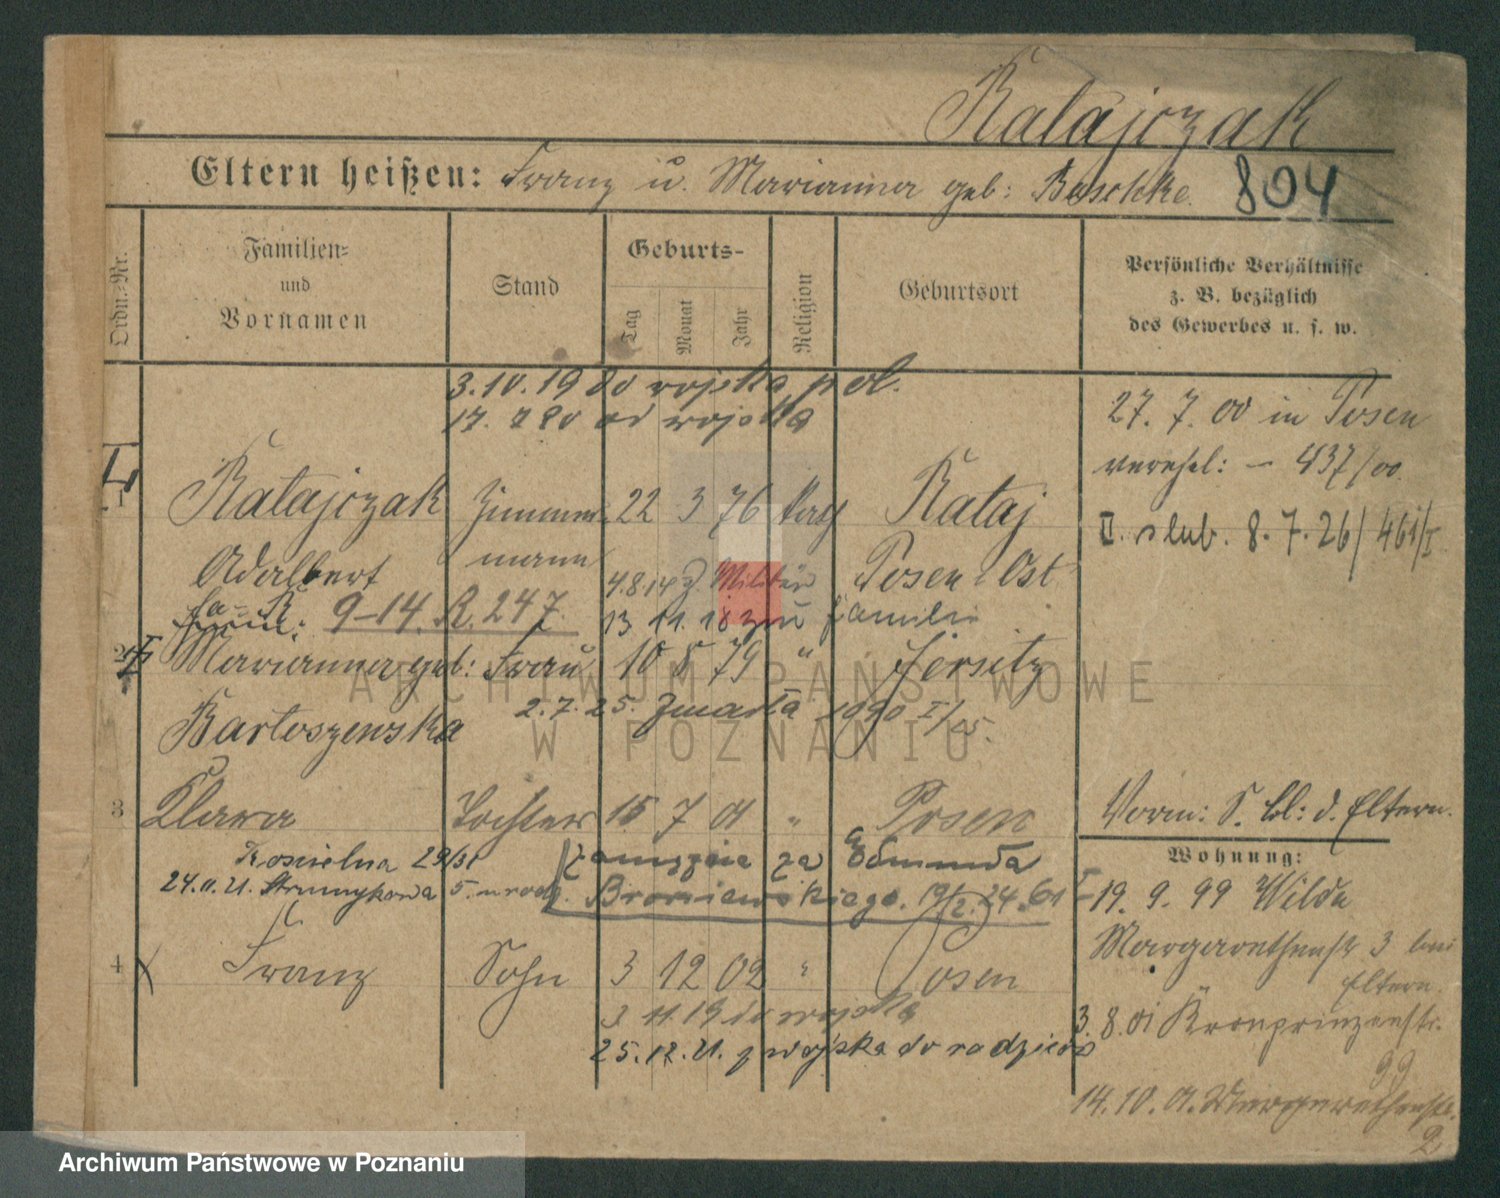 Ratajczak
Eltern heißen: Franz u. Marianna geb: Baschke.
804
Ordn.-Nr.
Familien-
und
Vornamen
Stand
Geburts-
Tag
Monat
Jahr
Religion
Geburtsort
Persönliche Verhältnisse
z. B. bezüglich
des Gewerbes u. s. w.
3.10.19 do wojska pol.
od wojska
27. 7. 00 in Posen
verehel: – 437/00.
1 Ratajczak Zimmer- 22 3 76 kath Rataj
II. slub. 8.7.26/461/I
Adalbert mann Posen Ost
4.8.14 z. Militär
9-14. R. 247. 13 11. 18 zur Familie
2 Marianna geb: Frau 10 8 79 " Jersitz
Bartoszewska 2.7.25. Zmarła 1090 I/25.
3 Klara Tochter 15 7 01 " Posen
Vorm: S. bl: d. Eltern.
29/31 zamężna za Edmunda
Wohnung:
24.11.21. Strumykowa 5. u rodz. Broniewskiego. 19/2. 24. 61 I
19. 9. 99 Wilda
Margarethenstr 3 bei
Eltern.
4 Franz Sohn 3 12 02 " Posen
3 11.19 do wojska
3.8.01 Kronprinzenstr.
99
25.12.21. z wojska do rodziców
14.10.01. Margarethenstr.
2
ARCHIWUM PAŃSTWOWE
W POZNANIU
Archiwum Państwowe w Poznaniu